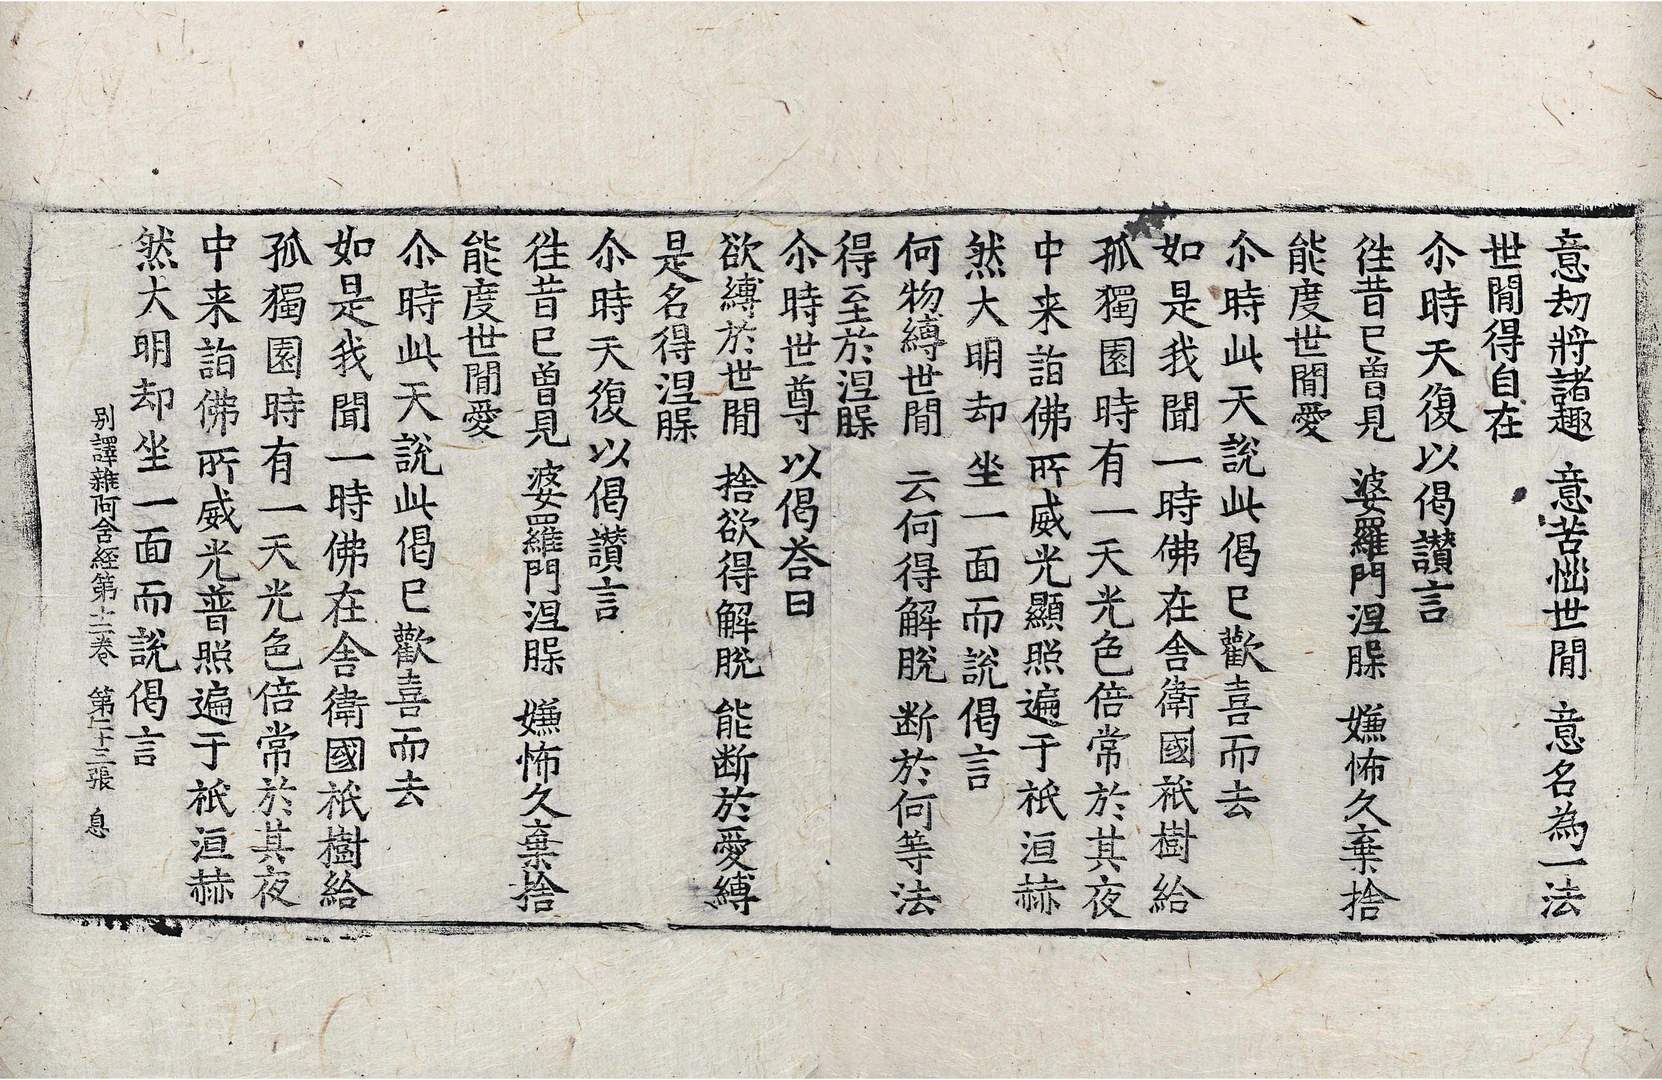 意劫將諸趣　意苦惱世間　意名為一法
世間得自在
尒時天復以偈讚言
徃昔已曾見　婆羅門涅槃　嫌怖久棄捨
能度世間愛
尒時此天說此偈已歡喜而去
如是我聞一時佛在舍衛國祇樹給
孤獨園時有一天光色倍常於其夜
中来詣佛所威光顯照遍于祇洹赫
然大明却坐一面而說偈言
何物縛世間　云何得解脫　断於何等法
得至於涅槃
尒時世尊以偈荅曰
欲縛於世間　捨欲得解脫　能断於愛縛
是名得涅槃
尒時天復以偈讚言
徃昔已曾見　婆羅門涅槃　嫌怖久棄捨
能度世間愛
尒時此天說此偈已歡喜而去
如是我聞一時佛在舍衛國祇樹給
孤獨園時有一天光色倍常於其夜
中来詣佛所威光普照遍于祇洹赫
然大明却坐一面而說偈言
別譯雜阿含經第十二卷　第二十三張　息